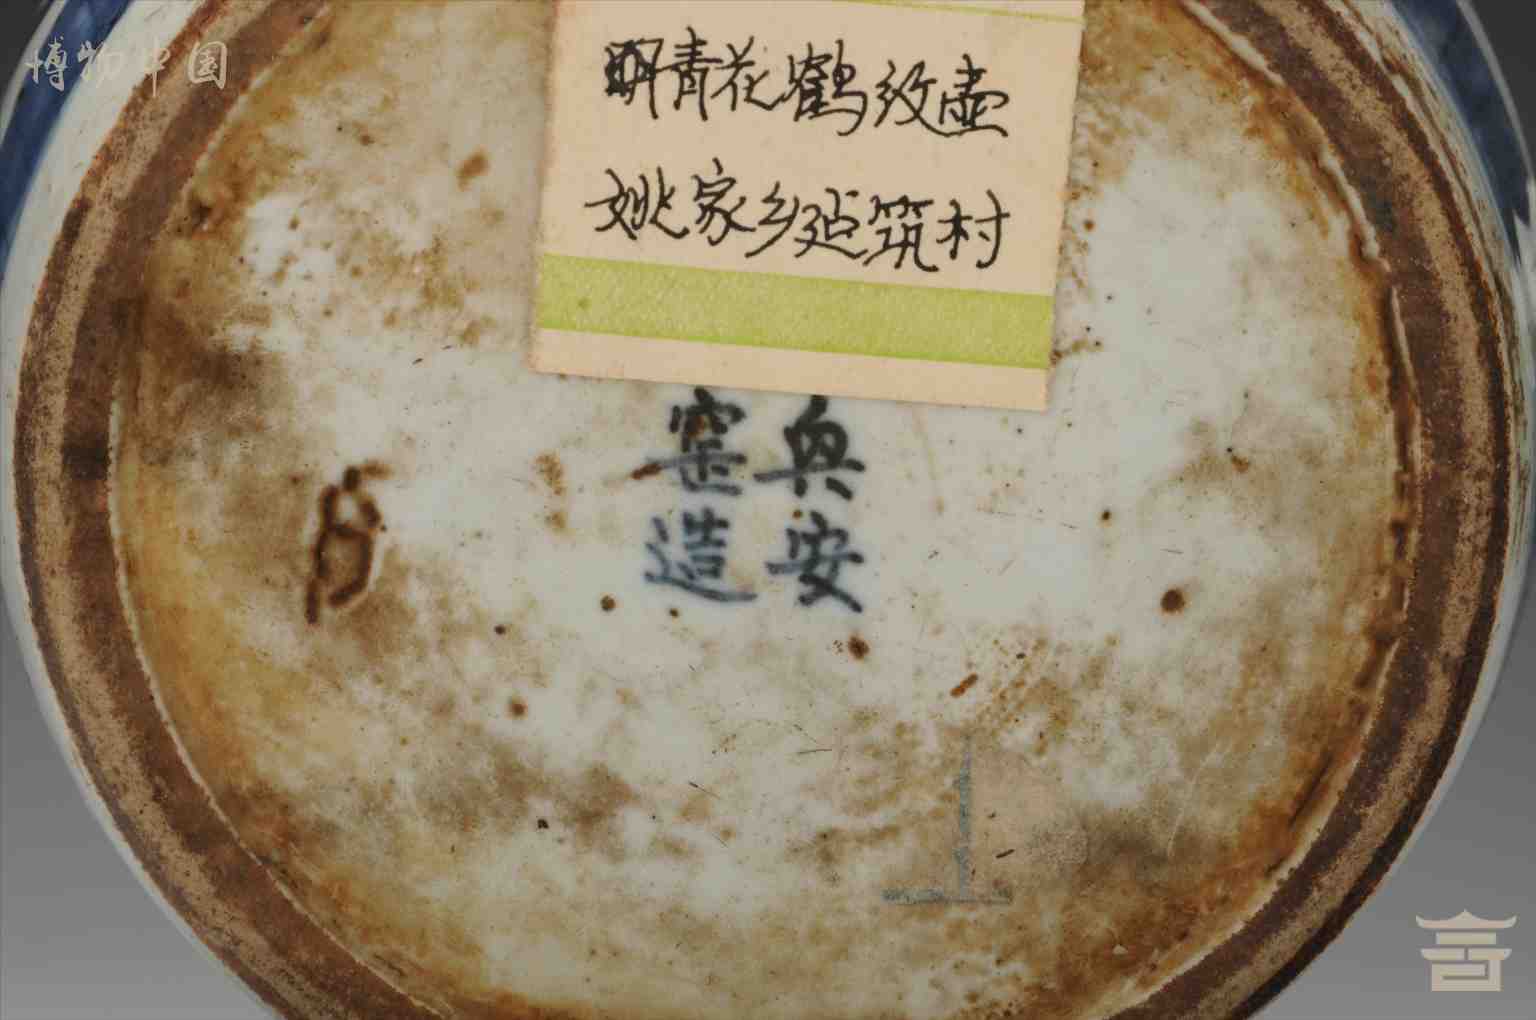 博物中国
明青花鹤纹壶
姚家乡建筑村
安
窑造